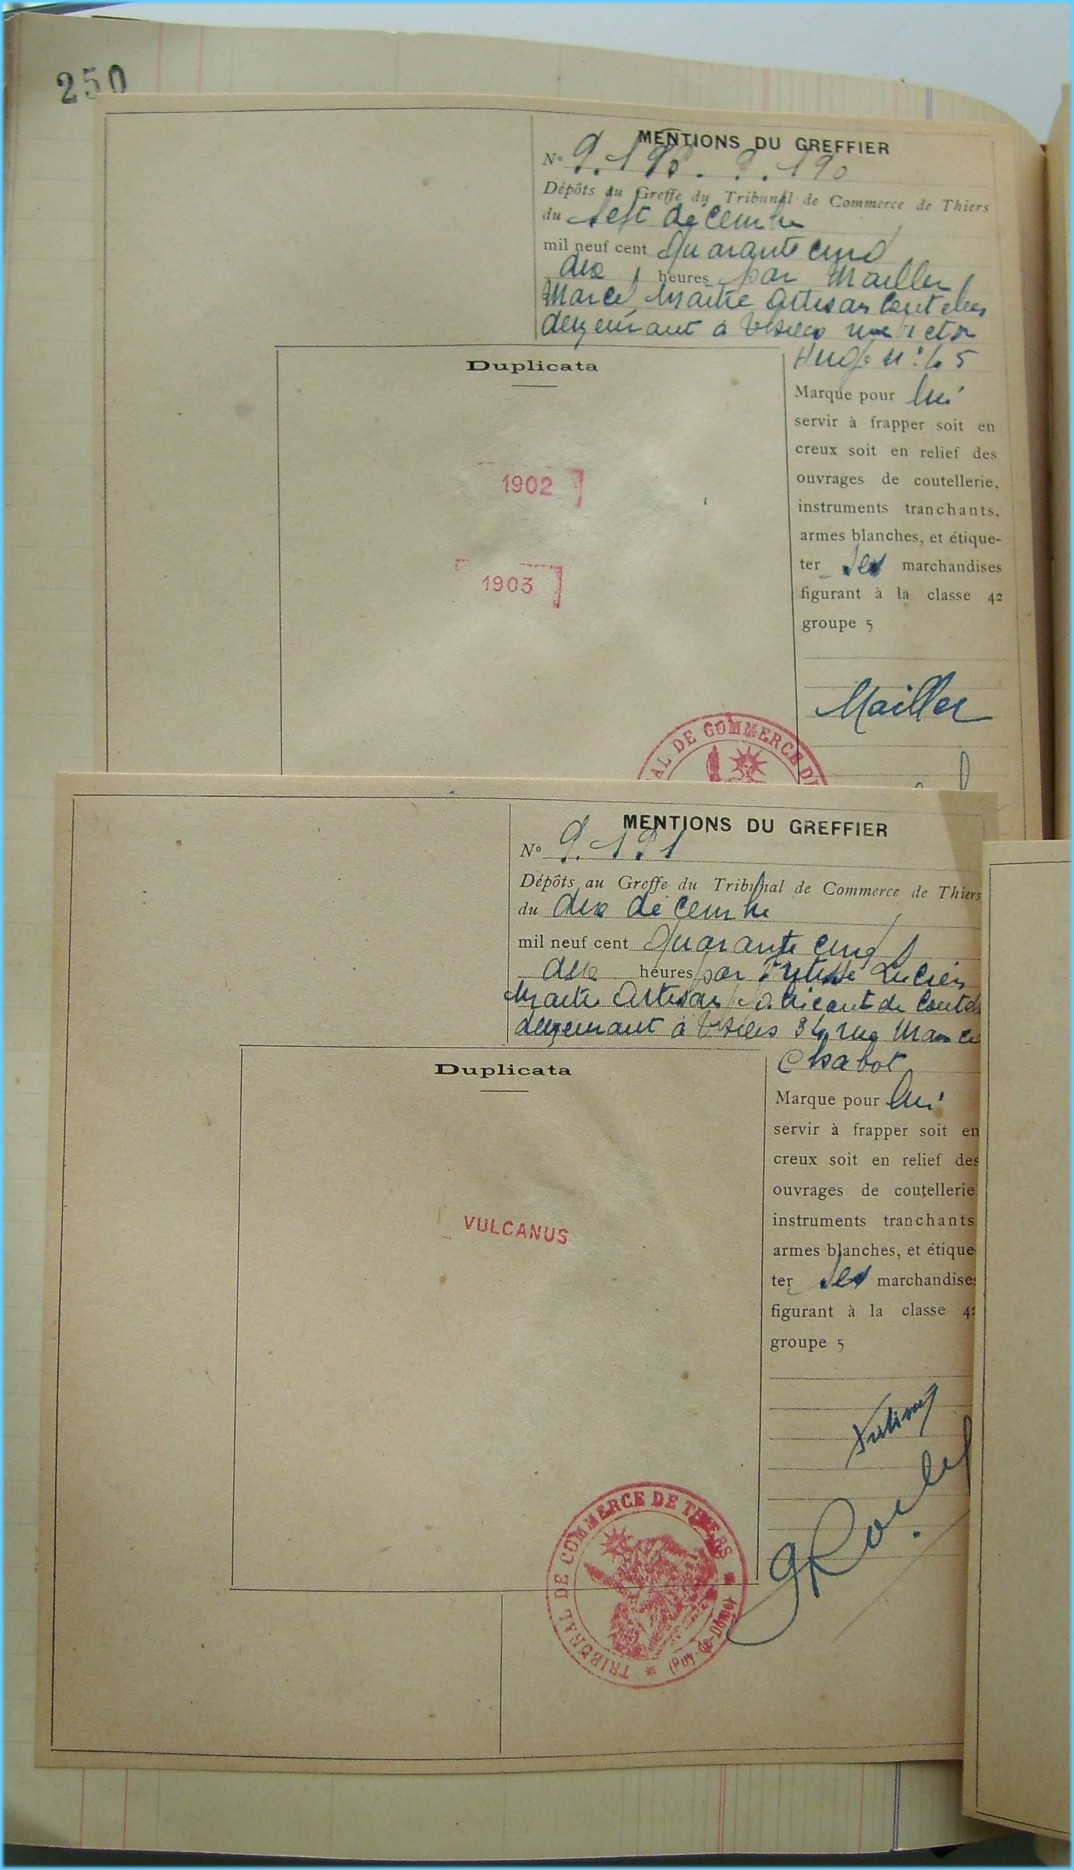 250
MENTIONS DU GREFFIER
N° 9.190
Dépôts au Greffe du Tribunal de Commerce de Thiers
du sept décembre
mil neuf cent quarante cinq
dix heures par Mailler
Marcel Maitre Artisan Coutelier
demeurant à Thiers rue Victor
Hugo n°
Duplicata
Marque pour lui
servir à frapper soit en
creux soit en relief des
ouvrages de coutellerie,
instruments tranchants,
armes blanches, et étique-
ter ses marchandises
figurant à la classe 42
groupe 5
1902
1903
Mailler
AL DE COMMERCE DE
MENTIONS DU GREFFIER
N° 9.191
Dépôts au Greffe du Tribunal de Commerce de Thiers
du dix décembre
mil neuf cent quarante cinq
dix heures par Lucien
Maitre Artisan fabricant de Coute
demeurant à Thiers 34 rue
Chabot
Duplicata
Marque pour lui
servir à frapper soit en
creux soit en relief des
ouvrages de coutellerie
instruments tranchants
armes blanches, et étique
ter ses marchandises
figurant à la classe 42
groupe 5
VULCANUS
TRIBUNAL DE COMMERCE DE THIERS
(Puy-de-Dôme)